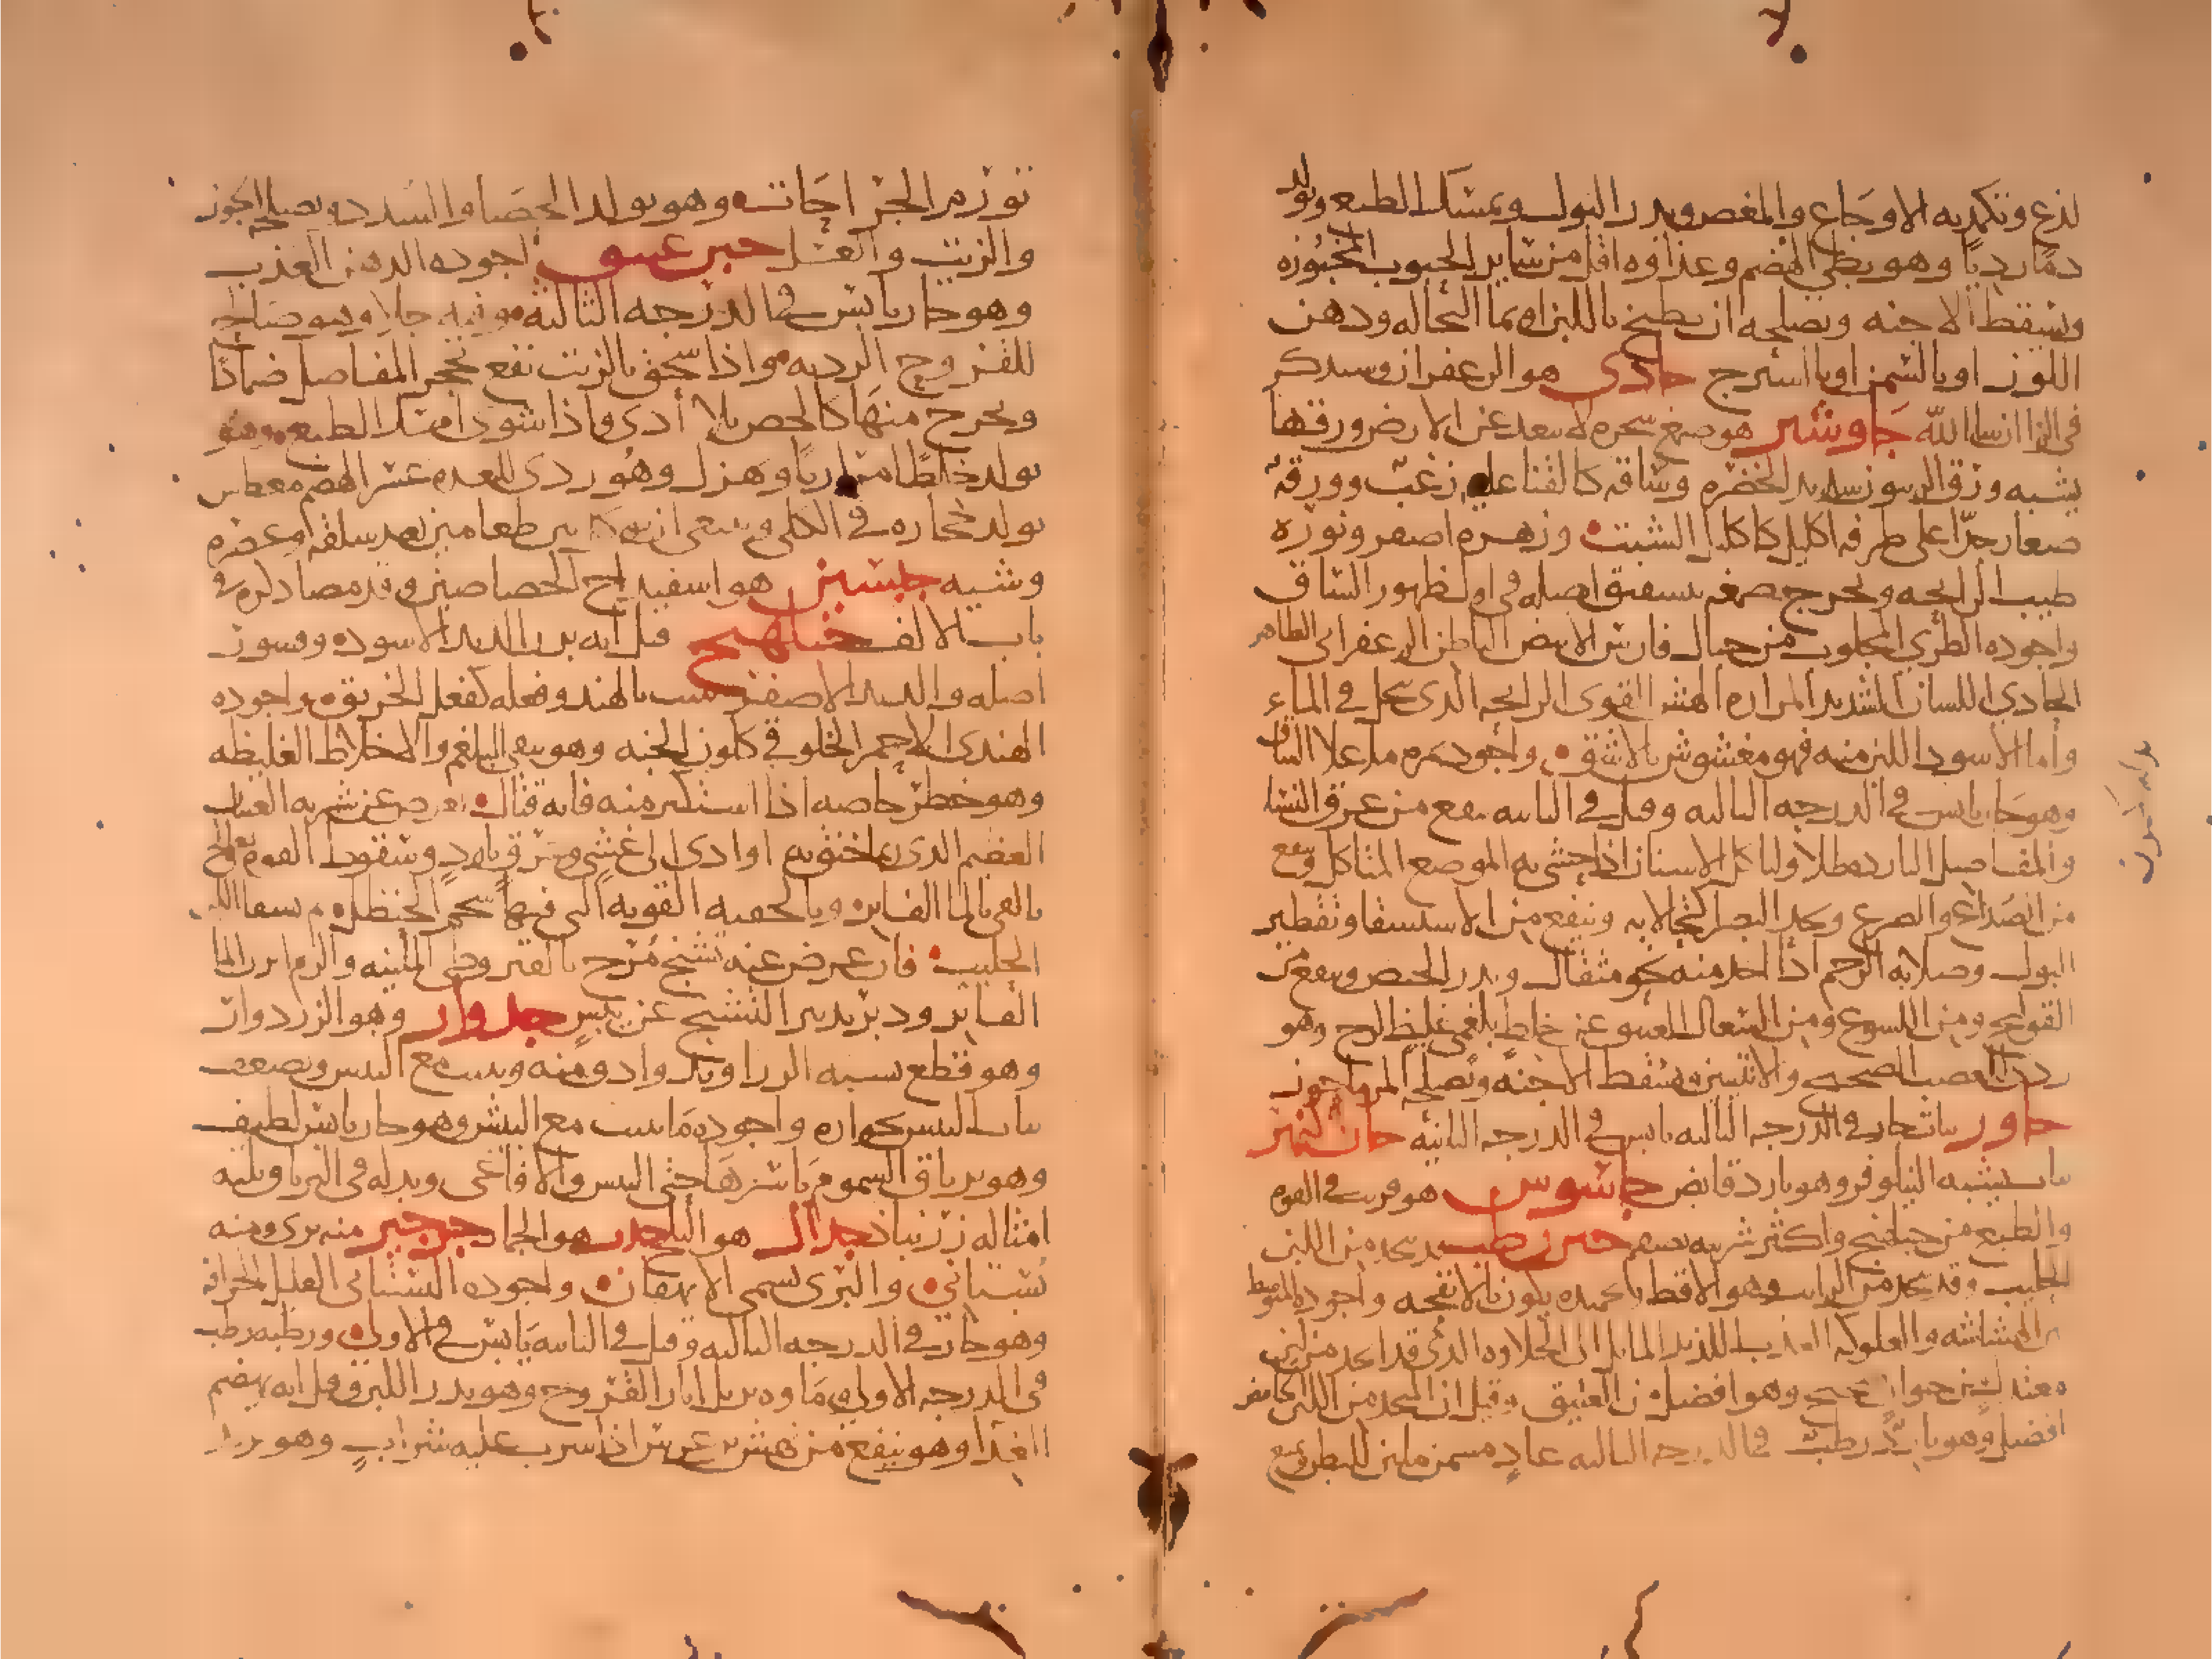 لذع وتكمد به الاوجاع والمغص ويدر البول ويمسك الطبع ويولد
دما رديا وهو بطى الهضم وغذاوه اقل من ساير الحبوب المخبوزه
ويسقط الاجنه ويصلحه ان يطبخ باللبن او بما النحاله ودهن
اللوز او بالسمن او بالشيرج جادى هو الزعفران وسيذكر
فى الزا ان شا الله جاوشير هو صمغ شجره لا تبعد عن الارض ورقها
يشبه ورق الزيتون شديد الخضره وساقه كالقنا عليه زغب وورقه
صغار جدا على طرفه اكليل كاكليل الشبت وزهره اصفر ونوره
طيب الرايحه ويخرج صمغه بتشقيق اصله فى اول ظهور الساق
واجوده الطرى المجلوب من جبال فارس الابيض الباطن الزعفرانى الظاهر
الحادى اللسان الشديد المراره الهش القوى الرايحه الذى ينحل فى الماء
واما الاسود اللين منه فهو مغشوش بالاشق واجود ثمره ما علا الساق
وهو حار يابس فى الدرجه الثالثه وقيل فى الثانيه ينفع من عرق النسا
والمفاصل البارده طلا ولتاكل الاسنان اذا حشى به الموضع المتاكل وينفع
من الصداع والصرع ويحد البصر كحلا به وينفع من الاستسقا وتقطير
البول وصلابه الرحم اذا اخذ منه نحو مثقال ويدر الحيض وينفع من
القولنج ومن اللسوع ومن السعال العتيق عن خلط بلغمى غليظ لزج وهو
ردى للعصب الصحيح والانثيين ويسقط الاجنه ويصلحه المرماحوز
جاور نبات حار فى الدرجه الثالثه يابس فى الدرجه الثانيه جار النهر
نبات يشبه النيلوفر وهو بارد قابض جاسوس هو قريب فى القوه
والطبع من جبلهنج واكثر شربه جبن رطب قد يتخذ من اللبن
الحليب وقد يتخذ من الرايب وهو الاقط واجوده المتوسط
بين الهشاشه والعلوكه العذب اللذيذ المايل الى الحلاوه الذى قد اتخذ من لبن
معتدل من حيوان صحيح وهو افضل من العتيق وقيل ان المتخذ من اللبن الحامض
افضل وهو بارد رطب فى الدرجه الثالثه غاذ مسمن ملين للبطن يمنع
تورم الجراحات وهو يولد الحصا والسدد ويصلحه الجوز
والزيت والعسل جبن عتيق اجوده الدهن العذب
وهو حار يابس فى الدرجه الثالثه وفيه جلا وهو صالح
للقروح الرديه واذا سحق بالزيت نفع تحجر المفاصل ضمادا
ويخرج منها كالجص بلا اذى واذا شوى امسك الطبع وهو
يولد خلطا مراريا وهزل وهو ردى للمعده عسر الهضم معطش
يولد حجاره فى الكلى وينبغى ان يوكل بين طعامين بعد سلقه او عصره
وشيه جبسين هو اسفيداج الجصاصين وقد مضا ذكره فى
باب الالف جبلهنج قيل انه بزر الاسوده وقشور
اصله والاصفر ينبت بالهند وفعله كفعل الخربق واجوده
الهندى الاحمر الخلوقى كلون الحبه وهو يقى البلغم والاخلاط الغليظه
وهو خطر خاصه اذا استكثر منه فانه قتال يعرض عن شربه الغثيان
العظيم الذى ربما خنق به او ادى الى غشى وعرق بارد وسقوط القوه ويعالج
بالقى بالما الفاتر وبالحقنه القويه التى فيها شحم الحنظل ثم يسقا اللبن
الحليب فان عرض عنه تشنج مرخ بالقيروطى الملينه والزم ابزن الما
الفاتر ودبر تدبير التشنج عن يبس جدوار وهو الزردوار
وهو قطع يشبه الزراوند وادق منه وينبت مع البيش ويضعف
نبات البيش بجواره واجوده ما نبت مع البيش وهو حار يابس لطيف
وهو ترياق السموم باسرها حتى البيش والافاعى وبدله فى الترياق ثلثه
امثاله زرنباد جدال هو البلح جدر هو الجمار جرجير منه برى ومنه
بستانى والبرى يسمى الايهقان واجوده البستانى القليل الحرافه
وهو حار فى الدرجه الثالثه وقيل فى الثانيه يابس فى الاولى ورطبه رطب
فى الدرجه الاولى ماوه يزيل اثار القروح وهو يدر اللبن وقيل انه يهضم
الغذا وهو ينفع من نهش ابن عرس اذا شرب عليه شراب وهو يزيد